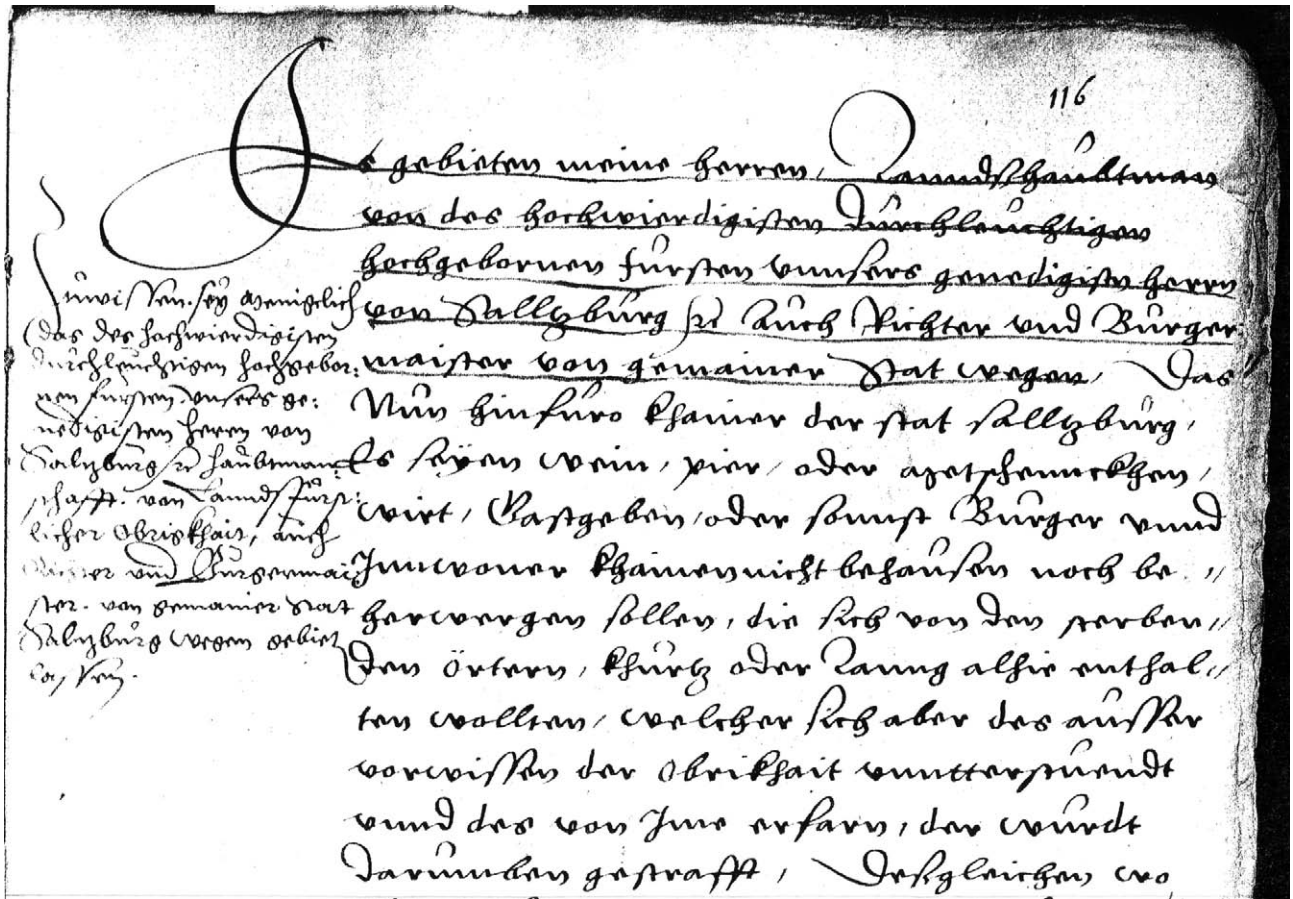 116
Es gebieten meine herren, Lanndshaubtman
von des hochwierdigisten Durchleuchtigen
hochgebornen fursten vnnsers genedigisten herrn
von Salltzburg rc Auch Richter vnd Burger
maister von gemainer Stat wegen, Das
Nun hinfuro khainer der stat salltzburg,
Es seyen wein, pier, oder metschennckhen,
wirt, Gastgeben, oder sonnst Burger vnnd
Innwoner khainen nicht behausen noch be„
herwergen sollen, die sich von den sterben„
den örtern, khurtz oder Lanng alhie enthal„
ten wollten, welcher sich aber des ausser
vorwissen der Obrikhait vnntterstuendt
vnnd des von Ime erfarn, der wurdt
darumben gestrafft, Desgleichen wo
Zuwissen sey menigclich
das des hochwierdigisten
durchleuchtigen hochgebor:
nen fursten vnsers ge:
nedigisten herrn von
Saltzburg rc haubtman:
schafft von Lanndsfurst:
licher Obriskhait, auch
Richter vnd Burgermai
ster von gemainer Stat
Saltzburg wegen gebiet
lassen.